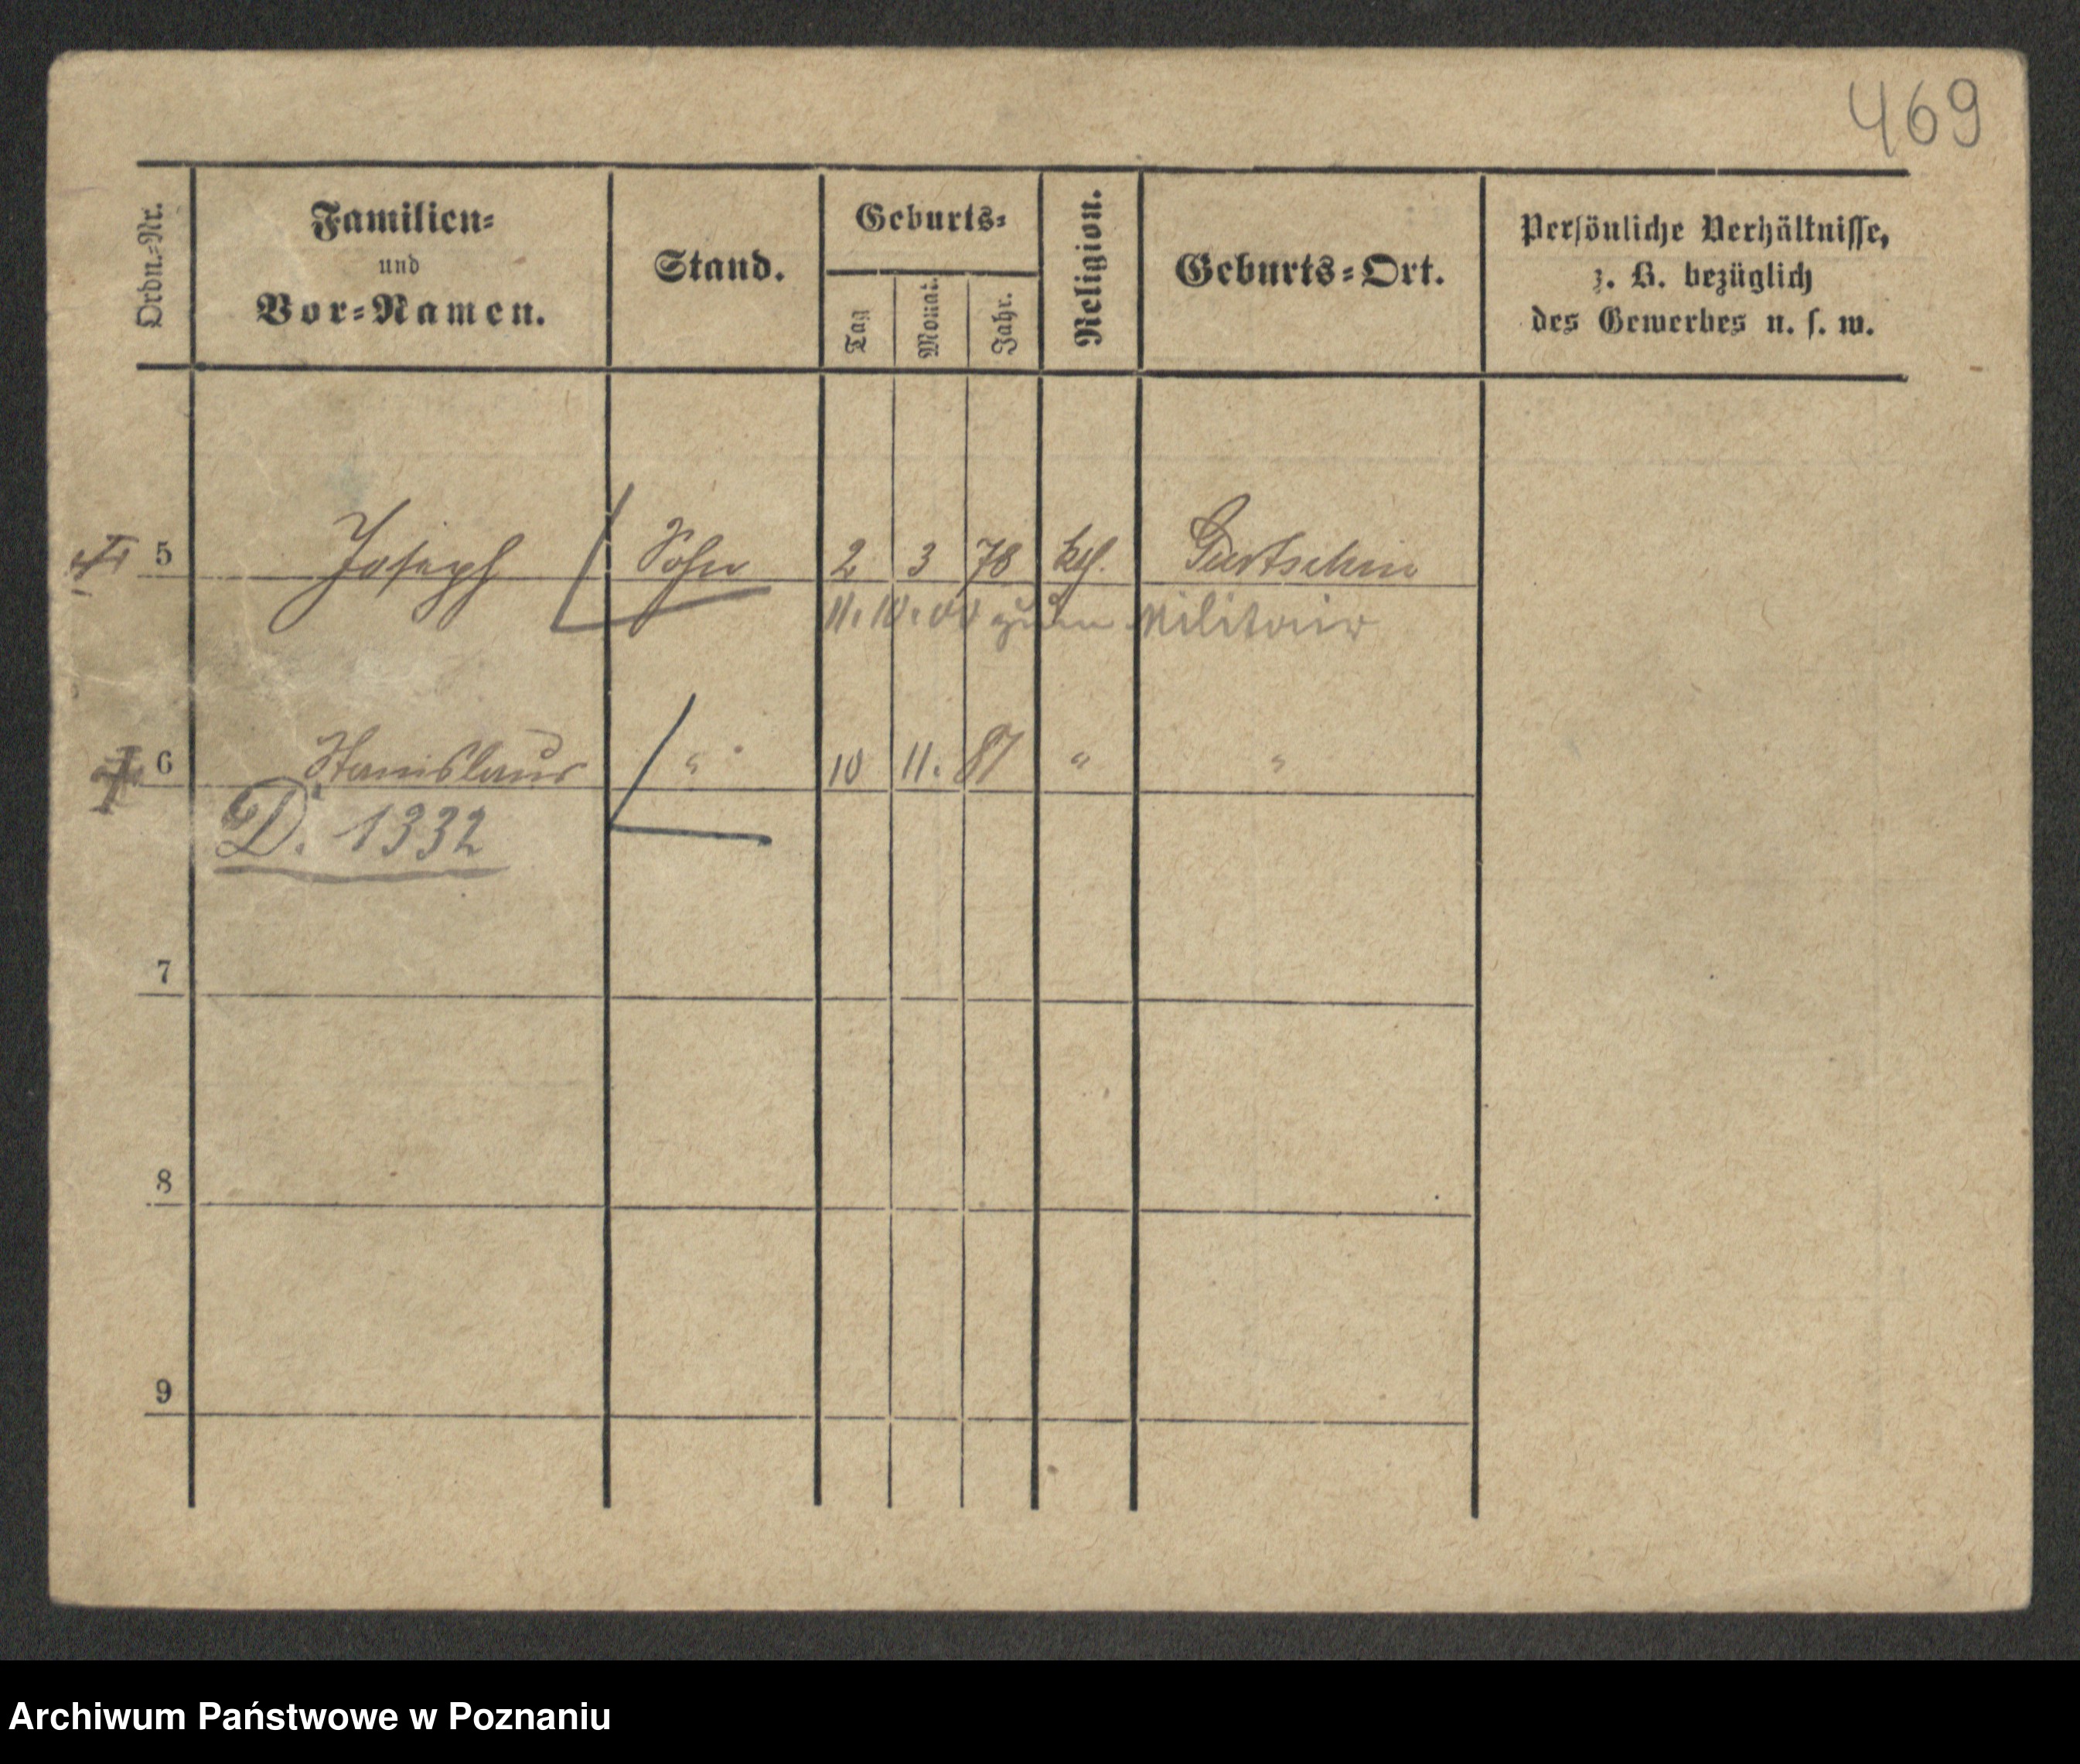 469
Ordn.-Nr.
Familien-
und
Vor-Namen.
Stand.
Geburts-
Tag
Monat.
Jahr.
Religion.
Geburts-Ort.
Persönliche Verhältnisse,
z. B. bezüglich
des Gewerbes u. s. w.
5 Joseph Sohn 2 3 78 kth. Gurtschin
11. 10. 00 zum Militair
6 Stanislaus " 10 11. 87 " "
D. 1332
7
8
9
Archiwum Państwowe w Poznaniu